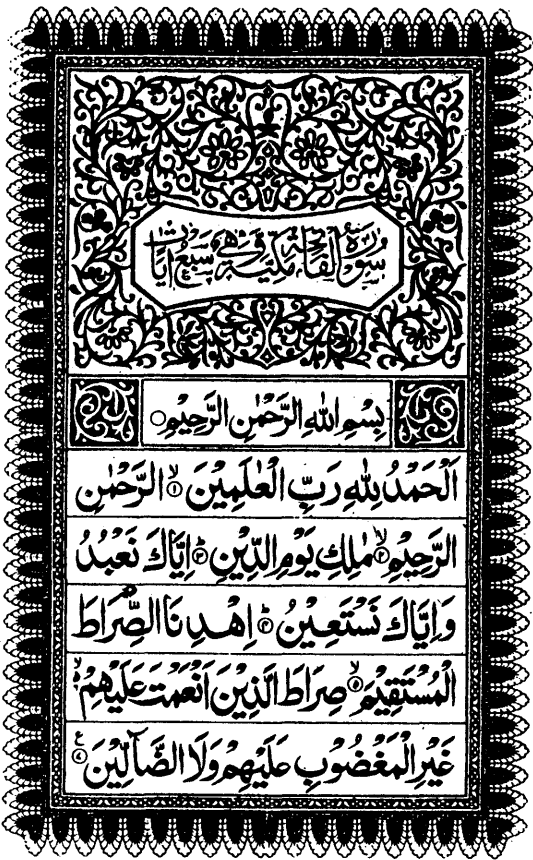 سُوْرَةُ الْفَاتِحَةِ مَكِّيَّةٌ وَّهِيَ سَبْعُ اٰيَاتٍ
بِسْمِ اللّٰهِ الرَّحْمٰنِ الرَّحِيْمِ ○
اَلْحَمْدُ لِلّٰهِ رَبِّ الْعٰلَمِيْنَ ۙ۱ الرَّحْمٰنِ
الرَّحِيْمِ ۙ۲ مٰلِكِ يَوْمِ الدِّيْنِ ؕ۳ اِيَّاكَ نَعْبُدُ
وَاِيَّاكَ نَسْتَعِيْنُ ؕ۴ اِهْدِنَا الصِّرَاطَ
الْمُسْتَقِيْمَ ۙ۵ صِرَاطَ الَّذِيْنَ اَنْعَمْتَ عَلَيْهِمْ ۙ
غَيْرِ الْمَغْضُوْبِ عَلَيْهِمْ وَلَا الضَّآلِّيْنَ